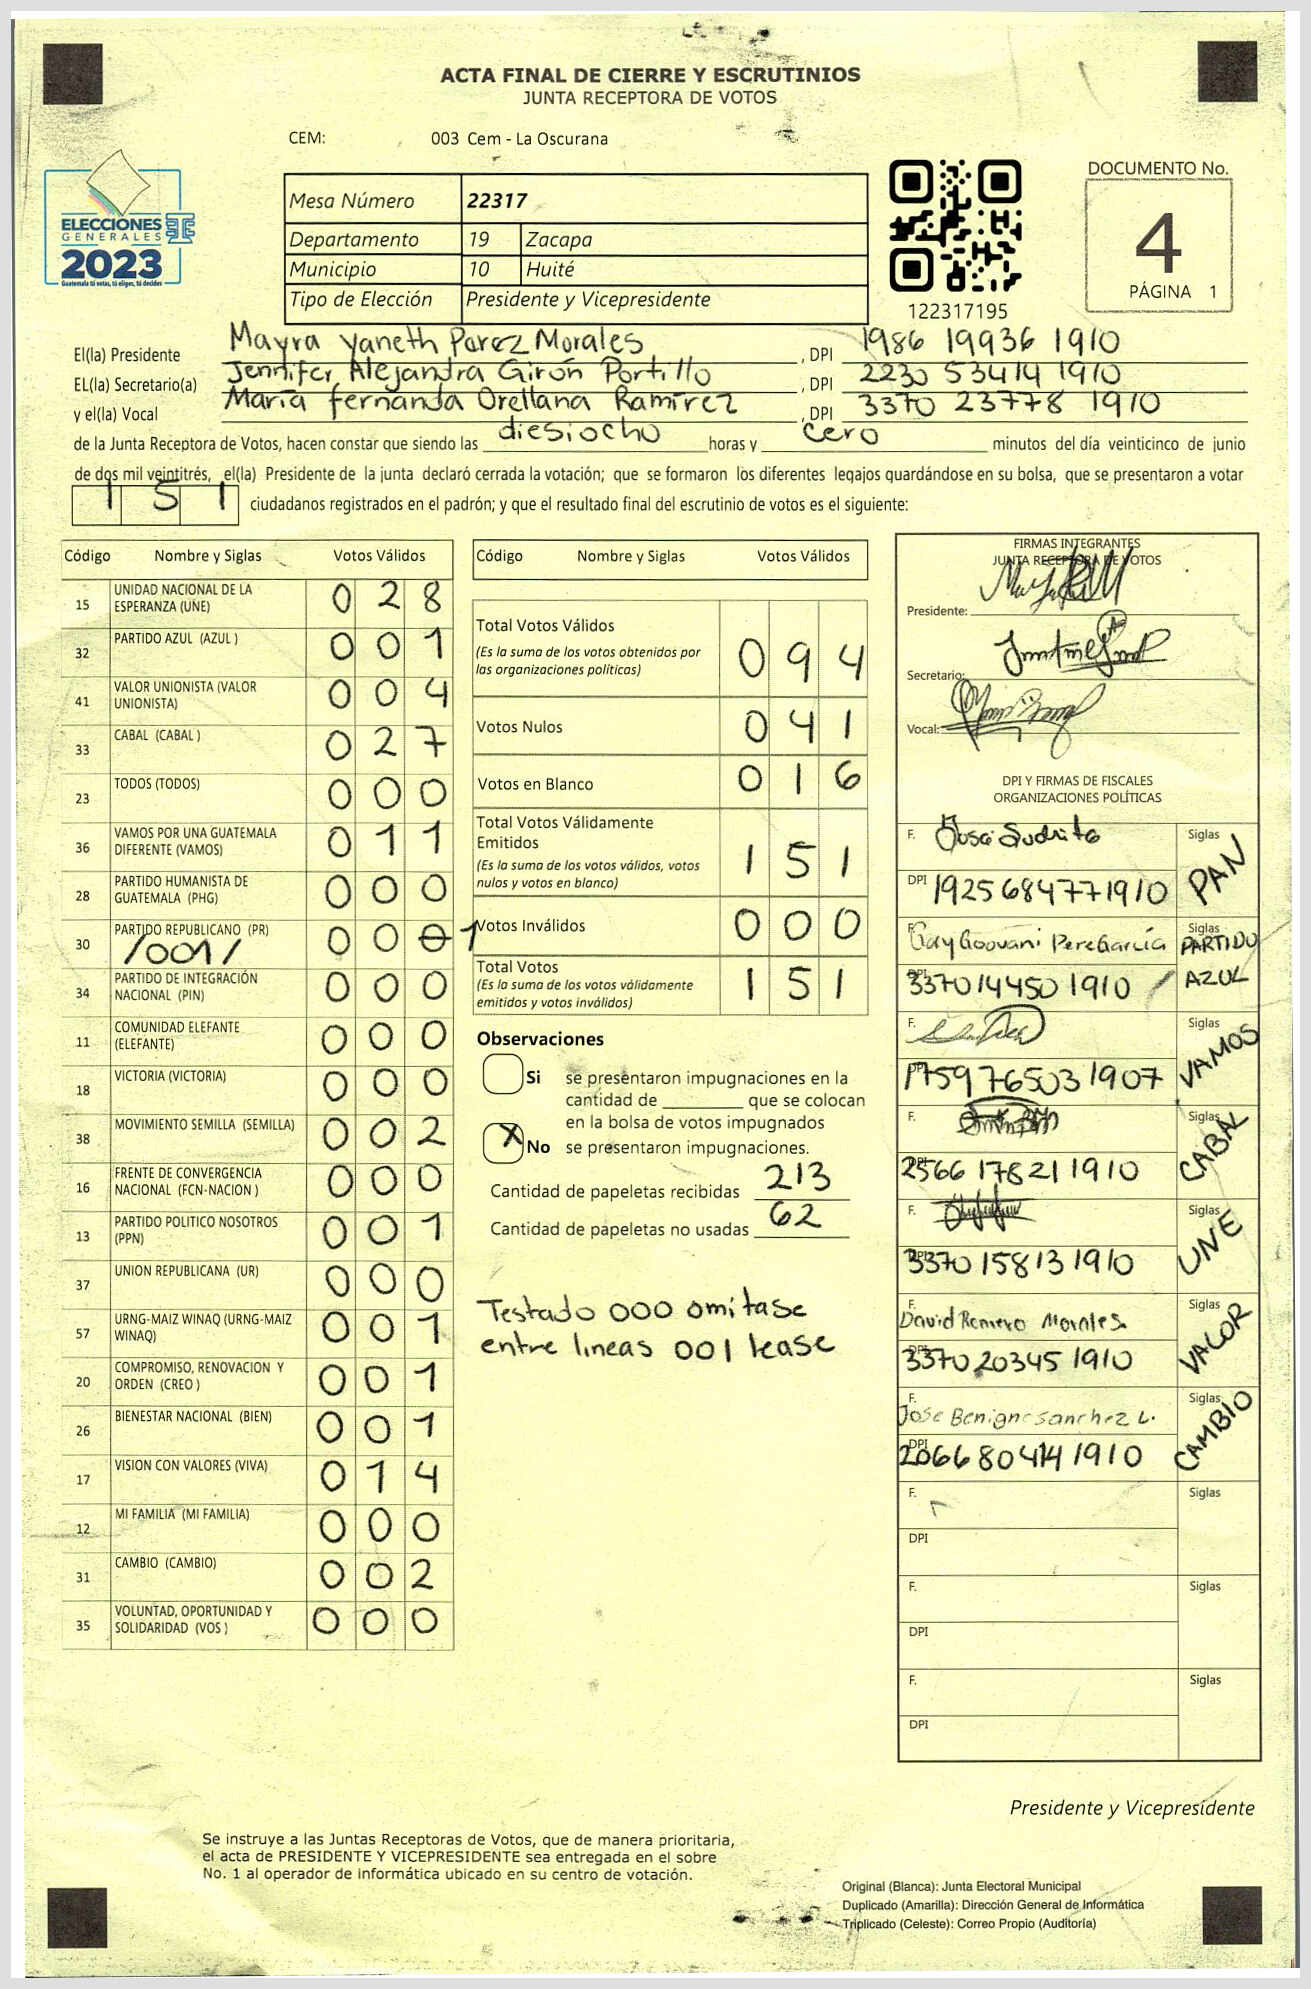 ACTA FINAL DE CIERRE Y ESCRUTINIOS
JUNTA RECEPTORA DE VOTOS
CEM: 003 Cem - La Oscurana
ELECCIONES
GENERALES
2023
Guatemala tú votas, tú eliges, tú decides
Mesa Número 22317
Departamento 19 Zacapa
Municipio 10 Huité
Tipo de Elección Presidente y Vicepresidente
122317195
DOCUMENTO No.
4
PÁGINA 1
El(la) Presidente Mayra Yaneth Perez Morales, DPI 1986 19936 1910
EL(la) Secretario(a) Jennifer Alejandra Girón Portillo, DPI 2230 53414 1910
y el(la) Vocal María fernanda Orellana Ramírez, DPI 3370 23778 1910
de la Junta Receptora de Votos, hacen constar que siendo las diesiocho horas y cero minutos del día veinticinco de junio
de dos mil veintitrés, el(la) Presidente de la junta declaró cerrada la votación; que se formaron los diferentes legajos quardándose en su bolsa, que se presentaron a votar
1 5 1 ciudadanos registrados en el padrón; y que el resultado final del escrutinio de votos es el siguiente:
Código Nombre y Siglas Votos Válidos
15 UNIDAD NACIONAL DE LA ESPERANZA (UNE) 0 2 8
32 PARTIDO AZUL (AZUL ) 0 0 1
41 VALOR UNIONISTA (VALOR UNIONISTA) 0 0 4
33 CABAL (CABAL ) 0 2 7
23 TODOS (TODOS) 0 0 0
36 VAMOS POR UNA GUATEMALA DIFERENTE (VAMOS) 0 1 1
28 PARTIDO HUMANISTA DE GUATEMALA (PHG) 0 0 0
30 PARTIDO REPUBLICANO (PR) /001/ 0 0 0 1
34 PARTIDO DE INTEGRACIÓN NACIONAL (PIN) 0 0 0
11 COMUNIDAD ELEFANTE (ELEFANTE) 0 0 0
18 VICTORIA (VICTORIA) 0 0 0
38 MOVIMIENTO SEMILLA (SEMILLA) 0 0 2
16 FRENTE DE CONVERGENCIA NACIONAL (FCN-NACION ) 0 0 0
13 PARTIDO POLITICO NOSOTROS (PPN) 0 0 1
37 UNION REPUBLICANA (UR) 0 0 0
57 URNG-MAIZ WINAQ (URNG-MAIZ WINAQ) 0 0 1
20 COMPROMISO, RENOVACION Y ORDEN (CREO ) 0 0 1
26 BIENESTAR NACIONAL (BIEN) 0 0 1
17 VISION CON VALORES (VIVA) 0 1 4
12 MI FAMILIA (MI FAMILIA) 0 0 0
31 CAMBIO (CAMBIO) 0 0 2
35 VOLUNTAD, OPORTUNIDAD Y SOLIDARIDAD (VOS ) 0 0 0
Código Nombre y Siglas Votos Válidos
Total Votos Válidos 0 9 4
(Es la suma de los votos obtenidos por
las organizaciones políticas)
Votos Nulos 0 4 1
Votos en Blanco 0 1 6
Total Votos Válidamente
Emitidos 1 5 1
(Es la suma de los votos válidos, votos
nulos y votos en blanco)
Votos Inválidos 0 0 0
Total Votos 1 5 1
(Es la suma de los votos válidamente
emitidos y votos inválidos)
Observaciones
Si se presentaron impugnaciones en la
cantidad de ________ que se colocan
en la bolsa de votos impugnados
X No se presentaron impugnaciones.
Cantidad de papeletas recibidas 213
Cantidad de papeletas no usadas 62
Testado 000 omitase
entre lineas 001 lease
FIRMAS INTEGRANTES
JUNTA RECEPTORA DE VOTOS
Presidente:
Secretario:
Vocal:
DPI Y FIRMAS DE FISCALES
ORGANIZACIONES POLÍTICAS
F. Siglas PAN
DPI 1925684771910
F. Siglas PARTIDO
DPI 3370144501910 AZUL
F. Siglas VAMOS
DPI 1759765031907
F. Siglas CABAL
DPI 2566178211910
F. Siglas UNE
DPI 3370158131910
F. David Romero Morales Siglas VALOR
DPI 3370203451910
F. Jose Benigno Sanchez L. Siglas CAMBIO
DPI 2066804141910
F. Siglas
DPI
F. Siglas
DPI
F. Siglas
DPI
Presidente y Vicepresidente
Se instruye a las Juntas Receptoras de Votos, que de manera prioritaria,
el acta de PRESIDENTE Y VICEPRESIDENTE sea entregada en el sobre
No. 1 al operador de informática ubicado en su centro de votación.
Original (Blanca): Junta Electoral Municipal
Duplicado (Amarilla): Dirección General de Informática
Triplicado (Celeste): Correo Propio (Auditoría)